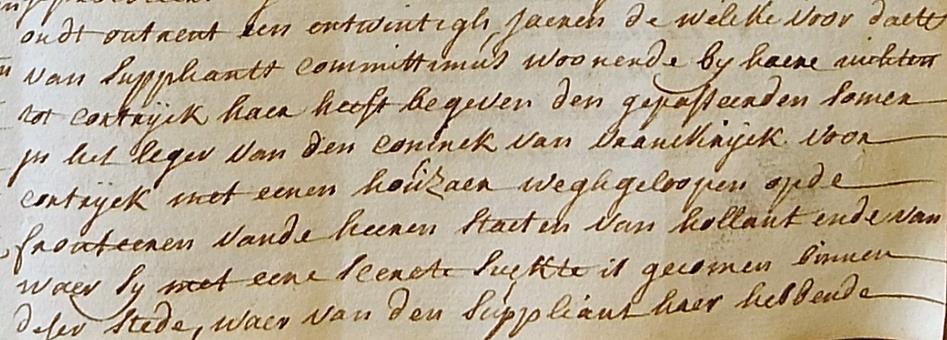 oudt ontrent een ontwintigh Jaeren de welcke voor daetto
van Suppliantt committimus woonende by haere nichten
tot cortryck haer heeft begeven den gepasseerden somer
jn het leger van den coninck van vranckrijck voor
cortryck met eenen houzaer weghgeloopen opde
fronteeren vande heeren Staeten van hollant ende van
waer sy met eene secrete sieckte is gecomen binnen
deser stede, waer van den Suppliant haer hebbende